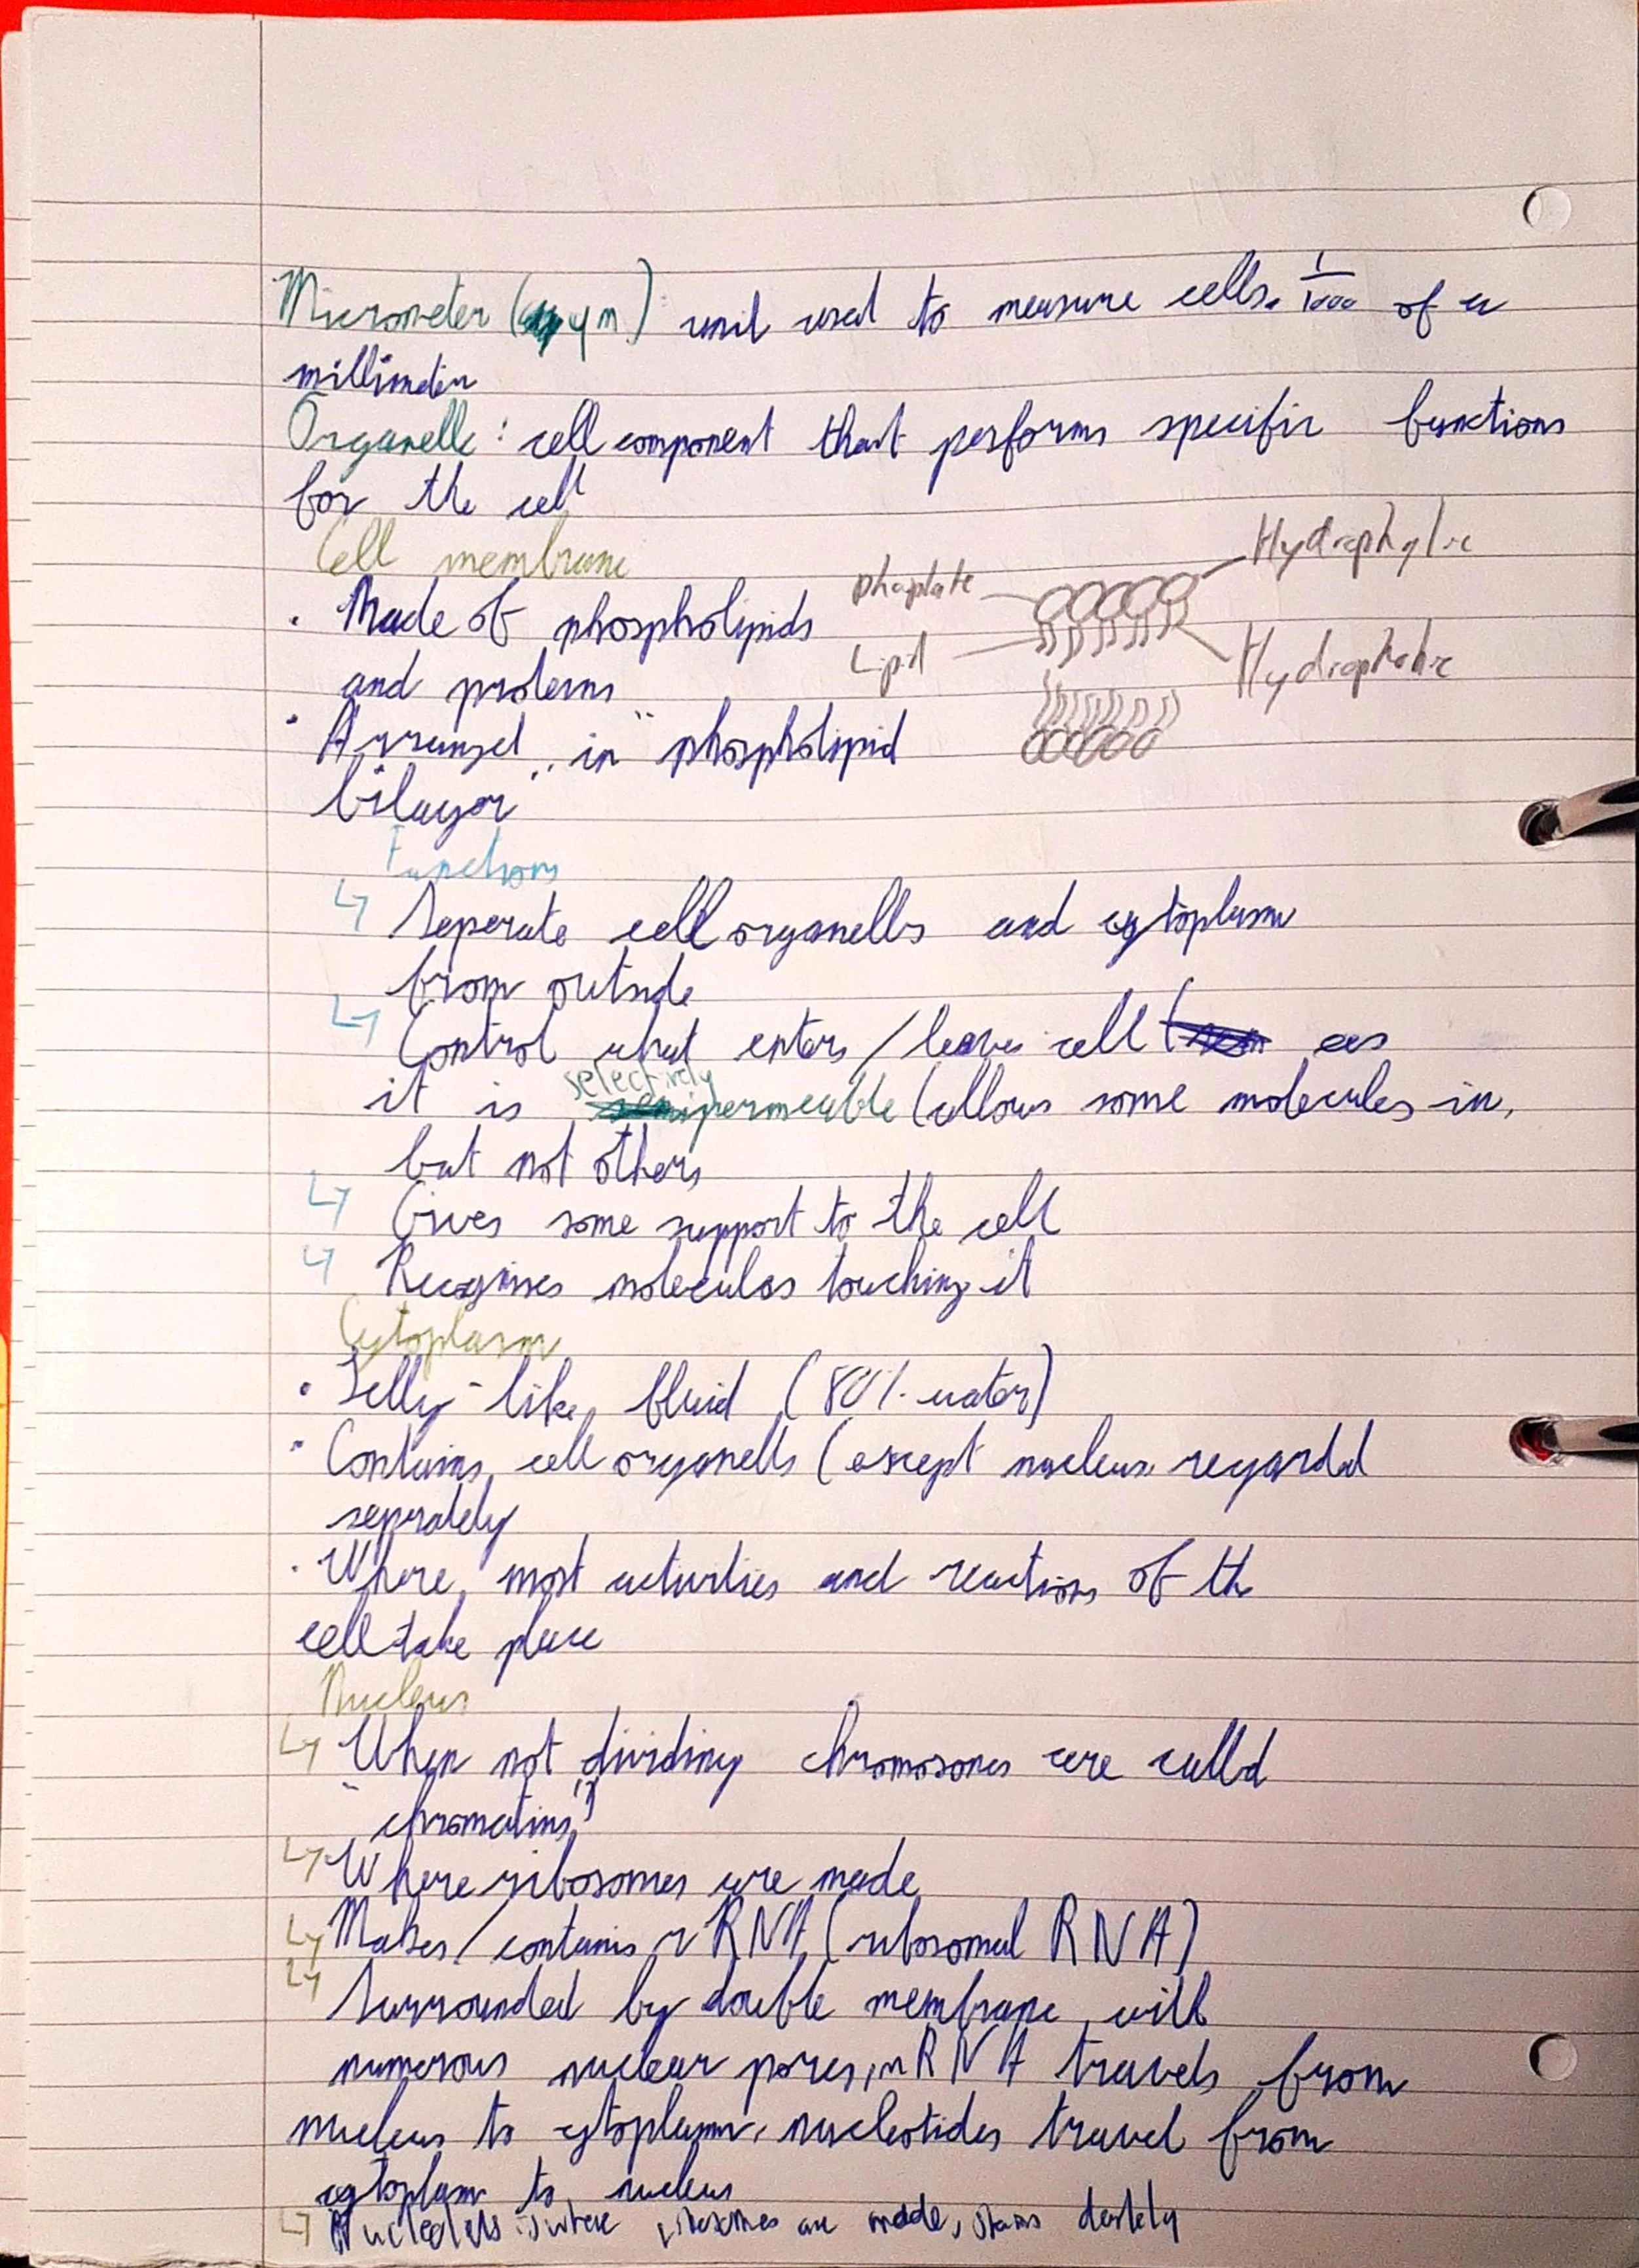 Micrometer (ųm): unit used to measure cells. 1/1000 of a
millimeter
Organelle: cell component that performs specific functions
for the cell
Cell membrane
Hydrophylic
phosphate
· Made of phospholipids
Lipid
Hydrophobic
and proteins
· Arranged in "phospholipid
bilayer"
Functions
↳ Seperate cell organells and cytoplasm
from outside
↳ Control what enters/leaves cell as
it is selectively permeable (allows some molecules in,
but not others
↳ Gives some support to the cell
↳ Recognises molecules touching it
Cytoplasm
· Jelly-like fluid (80% water)
· Contains cell organells (except nucleus regarded
seprately
· Where most activities and reactions of the
cell take place
Nucleus
↳ When not dividing chromosomes are called
"chromatins"
↳ Where ribosomes are made
↳ Makes/contains rRNA (ribosomal RNA)
↳ Surrounded by double membrane with
numerous nuclear pores, mRNA travels from
nucleus to cytoplasm, nucleotides travel from
cytoplasm to nucleus
↳ Nucleolus is where ribosomes are made, stains darkly